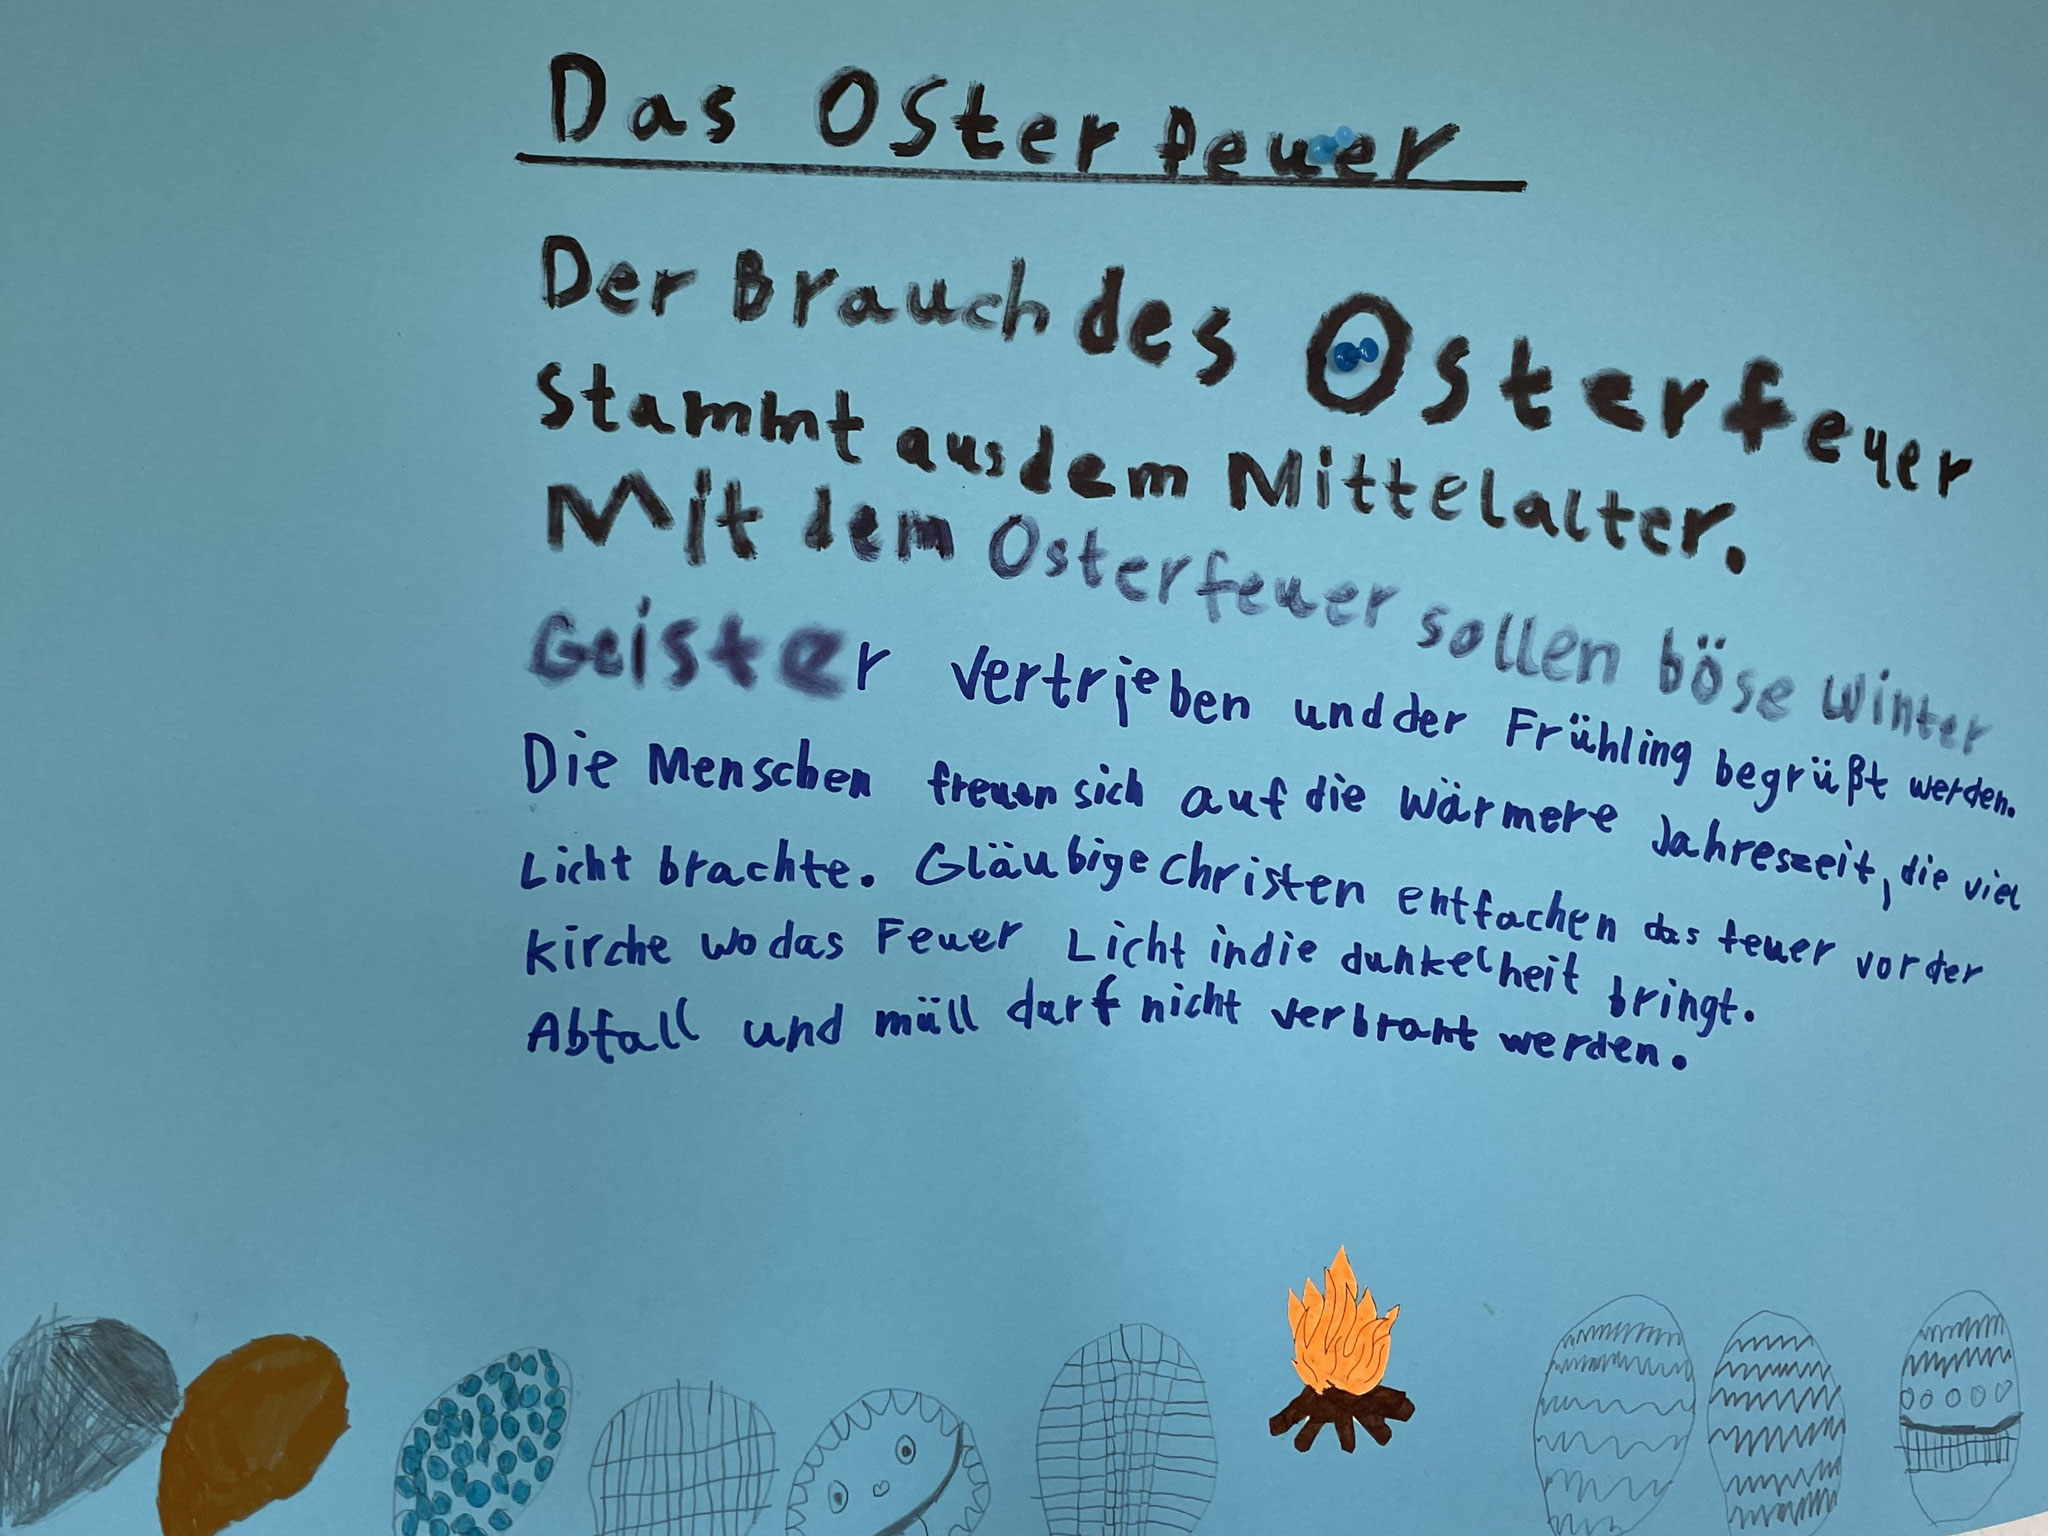 Das Osterfeuer
Der Brauch des Osterfeuer
stammt aus dem Mittelalter.
Mit dem Osterfeuer sollen böse Winter
Geister vertrieben und der Frühling begrüßt werden.
Die Menschen freuen sich auf die wärmere Jahreszeit, die viel
Licht brachte. Gläubige Christen entfachen das feuer vor der
Kirche wo das Feuer Licht in die dunkelheit bringt.
Abfall und müll darf nicht verbrant werden.